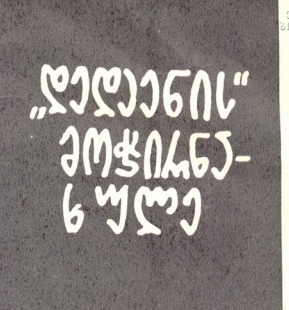 „დედაენის“
მოჭირნა-
ხულე